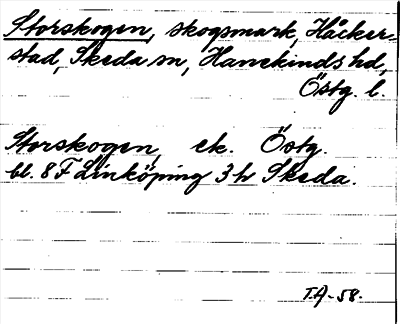 Storskogen, skogsmark, Håcker-
stad, Skeda sn, Hanekinds hd,
Östg. l.
Storskogen, ek. Östg.
bl. 8 F Linköping 3 h Skeda.
T.A-58.